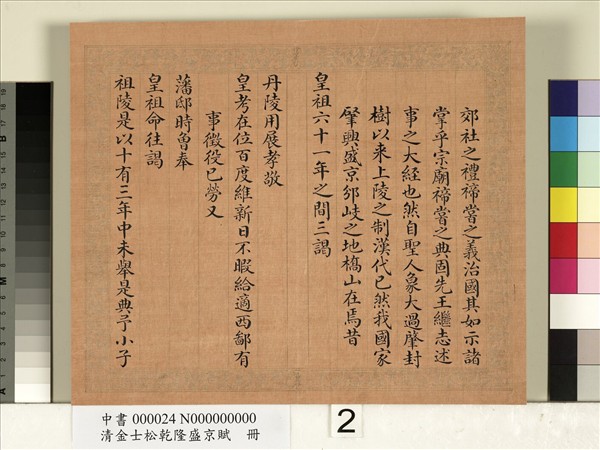 郊社之禮禘嘗之義治國其如示諸
掌乎宗廟禘嘗之典固先王繼志述
事之大經也然自聖人象大過肇封
樹以来上陵之制漢代已然我國家
肇興盛京邠岐之地橋山在焉昔
皇祖六十一年之間三謁
丹陵用展孝敬
皇考在位百度維新日不暇給適西鄙有
事徵役已勞又
藩邸時曾奉
皇祖命往謁
祖陵是以十有三年中未舉是典予小子
中書 000024 N000000000
清金士松乾隆盛京賦 冊
2